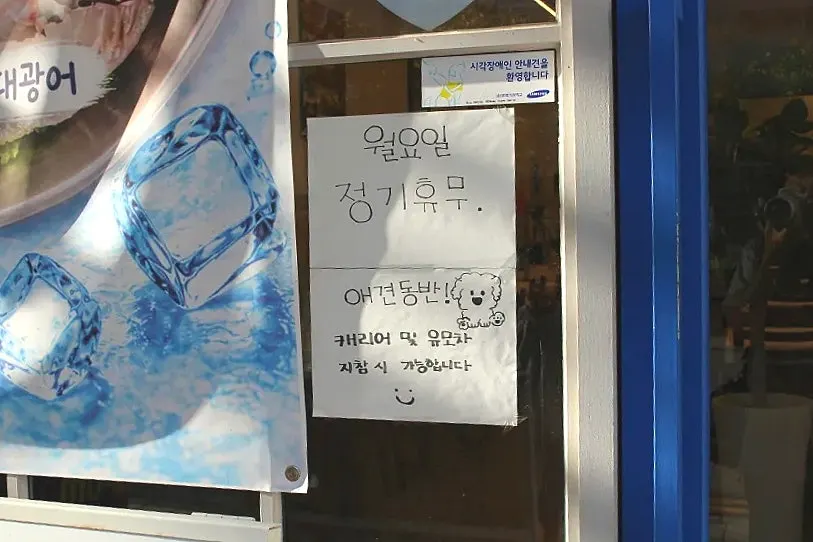 대광어
시각장애인 안내견을
환영합니다
SAMSUNG
월요일
정기휴무.
애견동반!
캐리어 및 유모차
지참 시 가능합니다